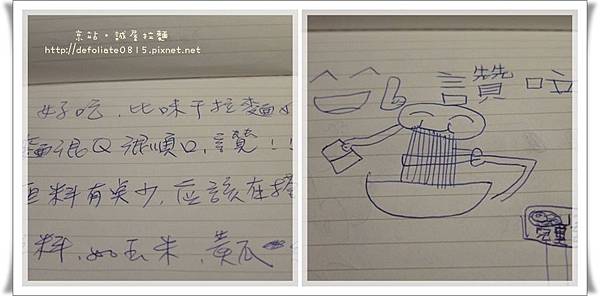 京站。誠屋拉麵
http://defoliate0815.pixnet.net
好吃，比味千拉麵
麵很Q 很順口，讚！！
料有臭少，应該在搭
料，如玉米，黃瓜
讚